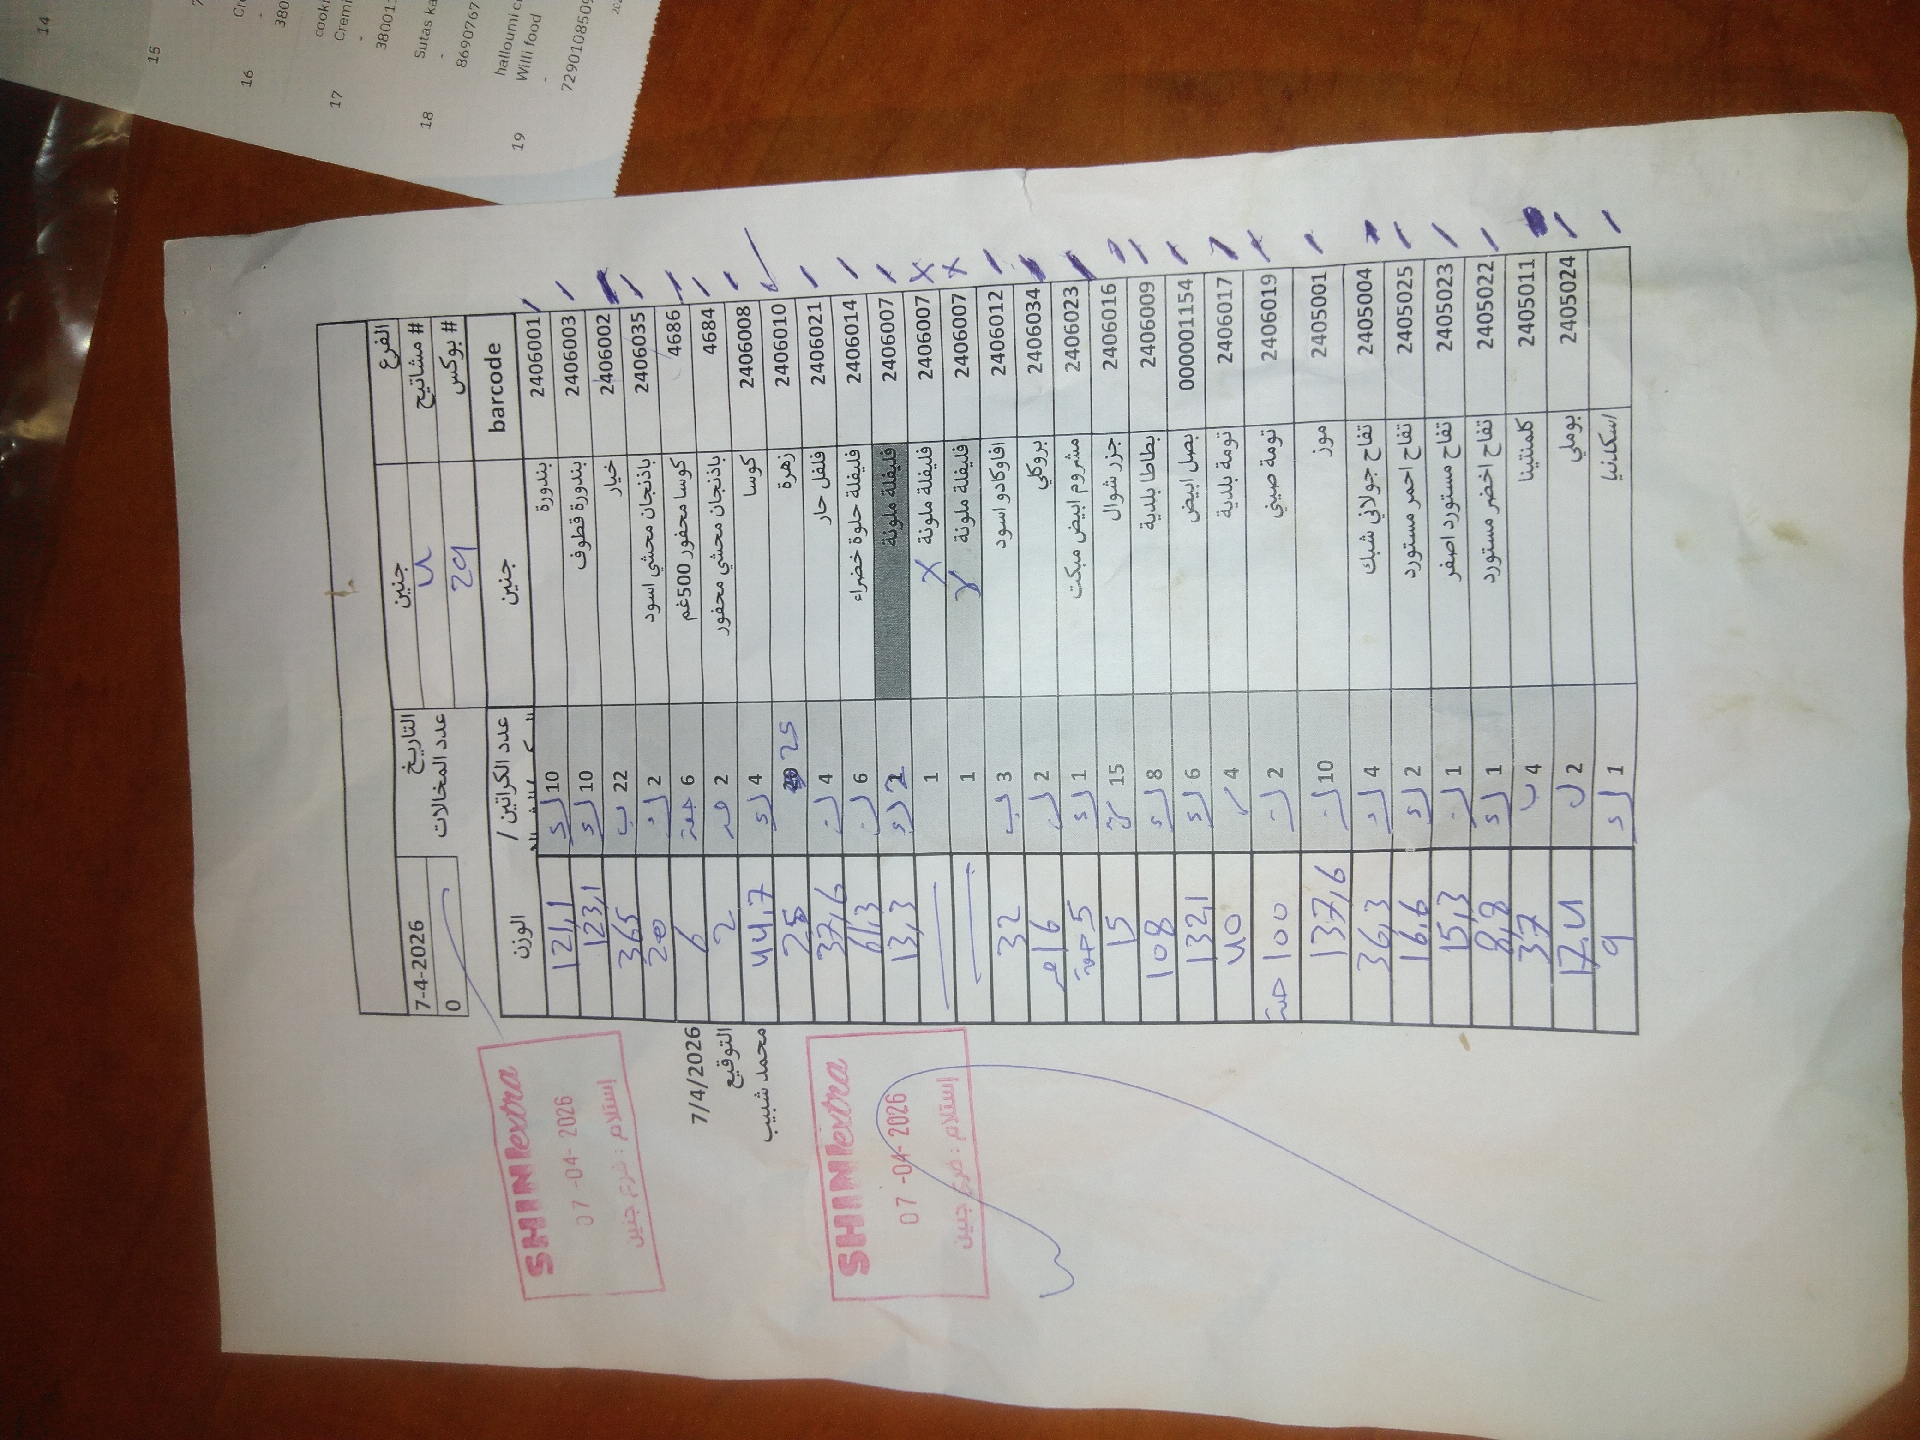 الفرع جنين التاريخ 7-4-2026
# مشاتيح 4 عدد المخالات 0
# بوكس 29
barcode جنين عدد الكراتين / الوزن
2406001 بندورة 10 121,1
2406003 بندورة قطوف 10 123,1
2406002 خيار 22 365
2406035 باذنجان محشي اسود 2 20
4686 كوسا محفور 500غم 6 6
4684 باذنجان محشي محفور 2 2
2406008 كوسا 4 44,7
2406010 زهرة 25 25
2406021 فلفل حار 4 37,6
2406014 فليفلة حلوة خضراء 6 61,3
2406007 فليفلة ملونة 2 13,3
2406007 فليفلة ملونة x 1
2406007 فليفلة ملونة x 1
2406012 افاوكادو اسود 3 32
2406034 بروكلي 2 16
2406023 مشروم ابيض مبكت 1 5
2406016 جزر شوال 15 15
2406009 بطاطا بلدية 8 108
000001154 بصل ابيض 6 132,1
2406017 تومة بلدية 4 40
2406019 تومة صيني 2 100 حبة
2405001 موز 10 137,6
2405004 تفاح جولاني شبك 4 36,3
2405025 تفاح احمر مستورد 2 16,6
2405023 تفاح مستورد اصفر 1 15,3
2405022 تفاح اخضر مستورد 1 8,8
2405011 كلمنتينا 4 37
2405024 بوملي 2 17,4
اسكدنيا 1 9
7/4/2026
التوقيع
محمد شبيب
SHINIextra
07-04-2026
إستلام : فرع جنين
SHINIextra
07-04-2026
إستلام : فرع جنين
14
15
16
17
18
19
380
cooki
Cremi
38001
Sutas ka
8690767
halloumi c
Willi food
7290108509